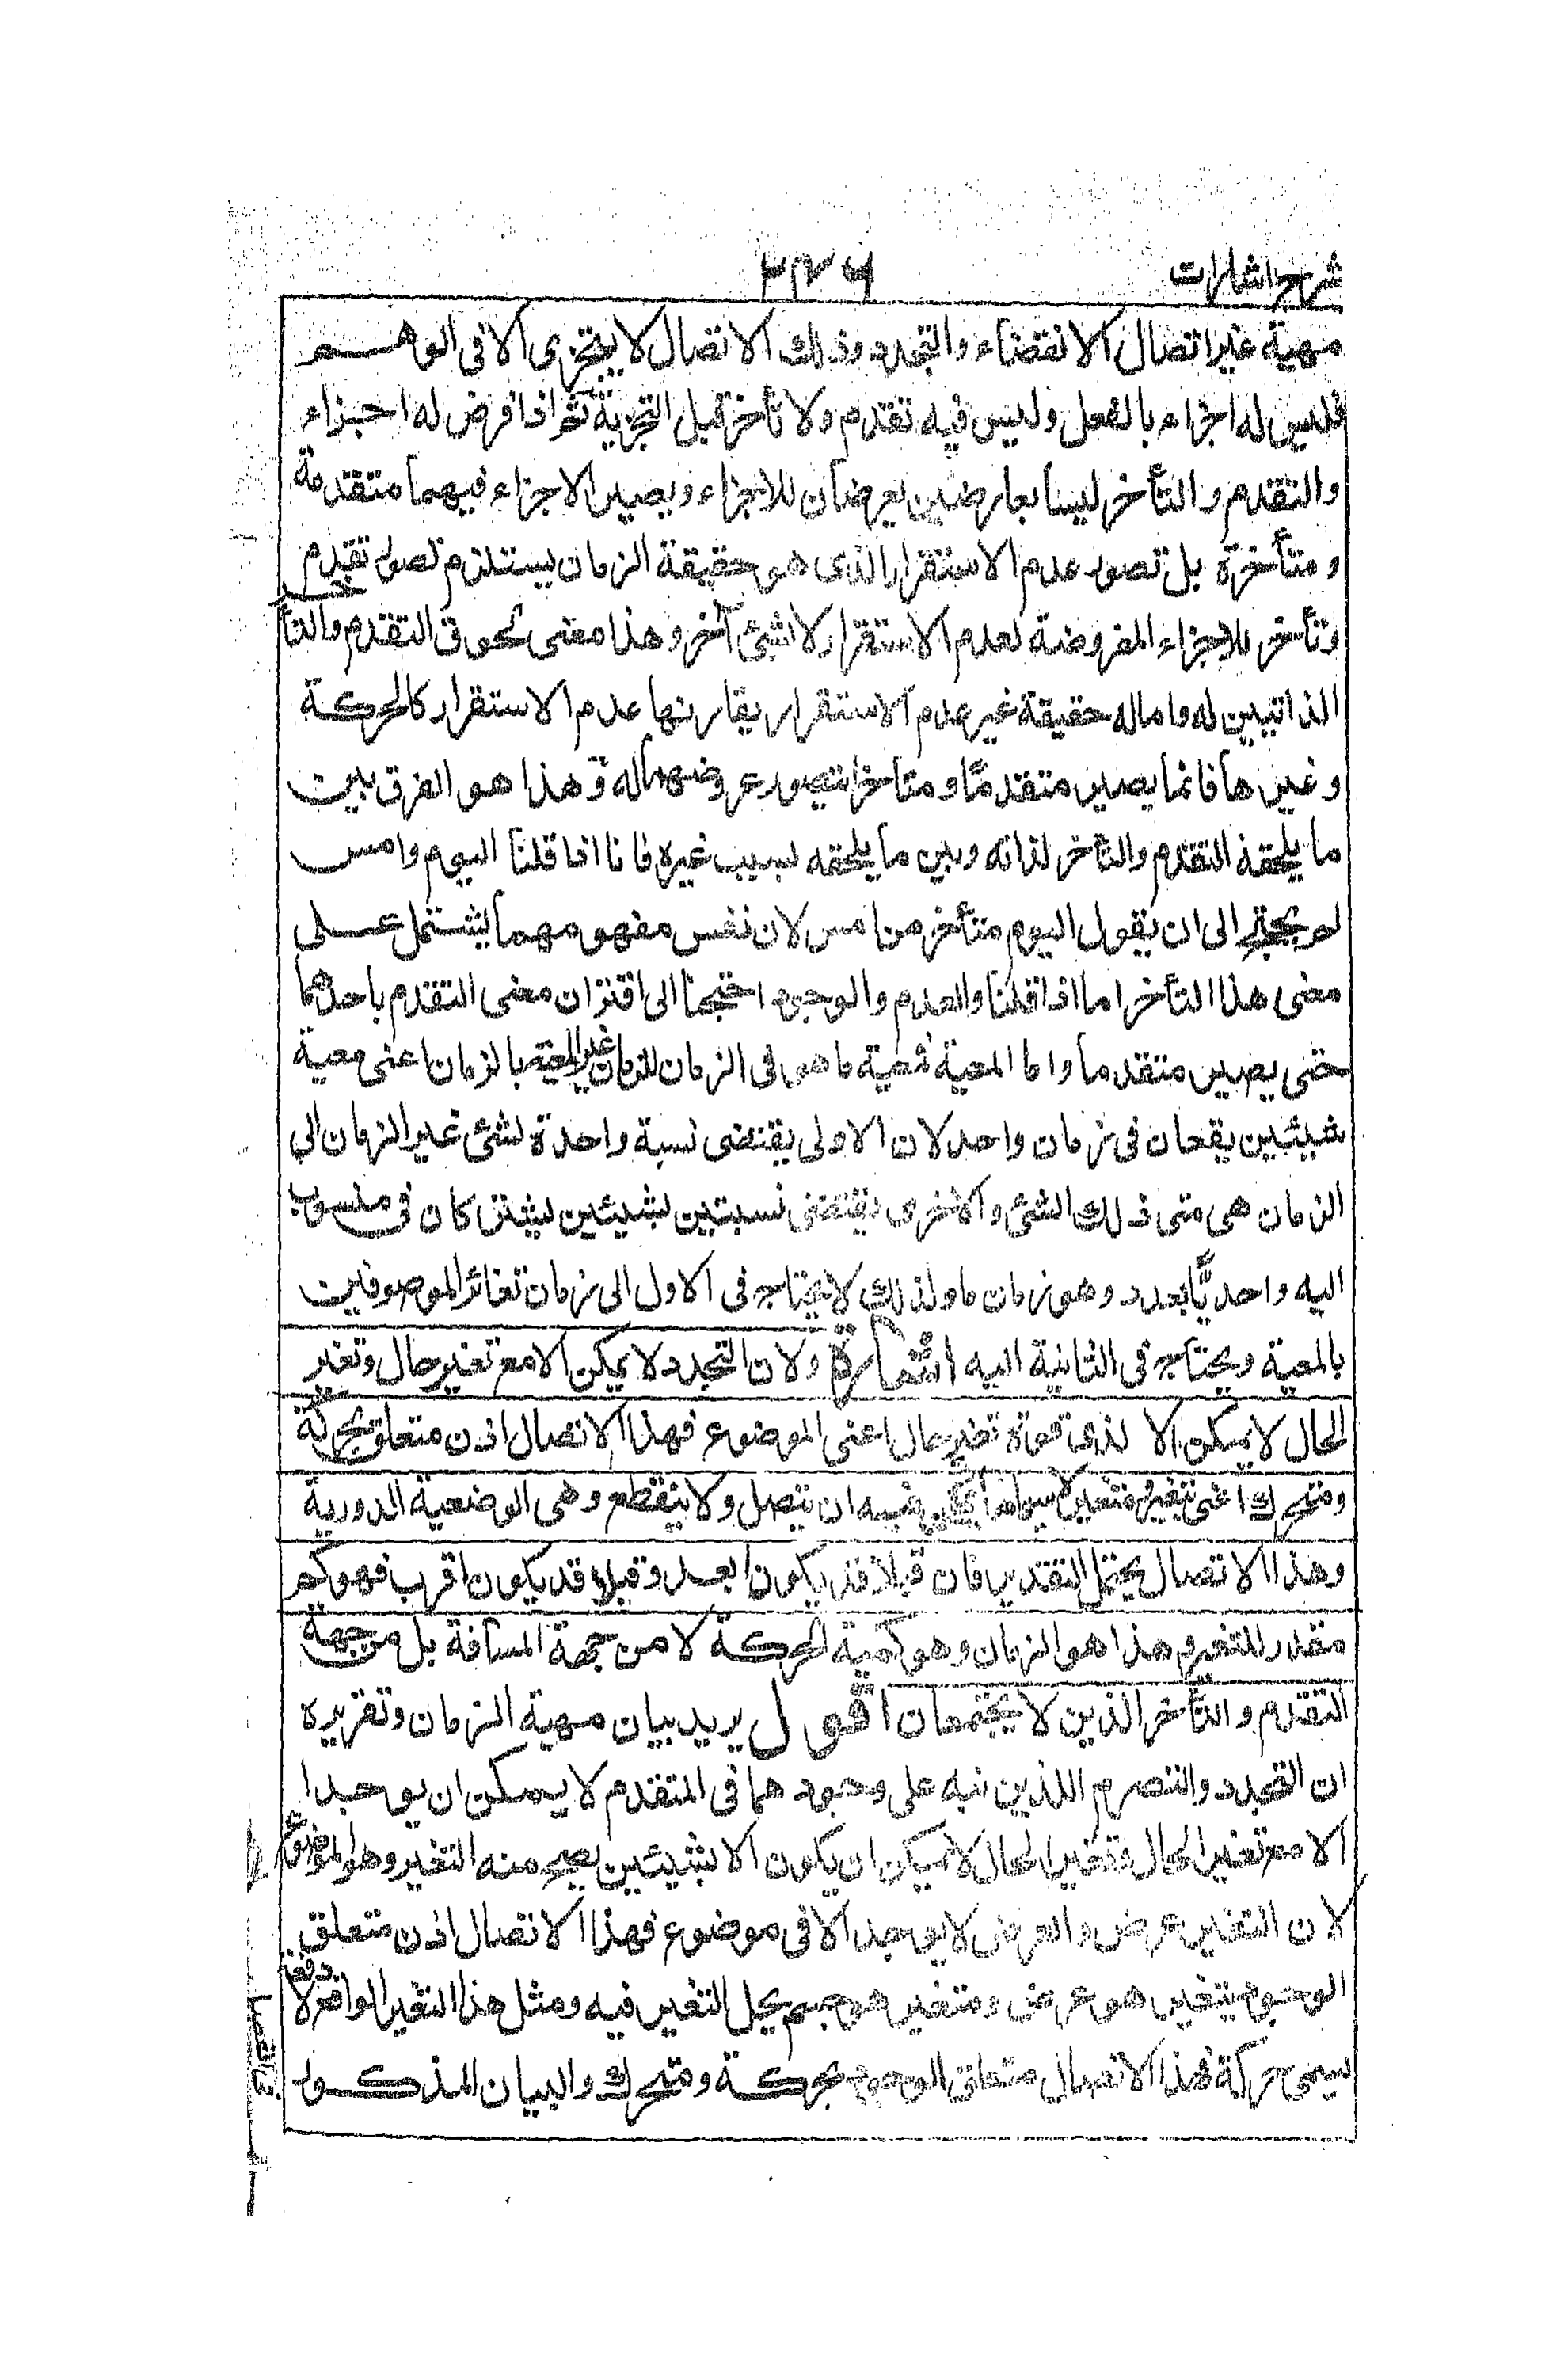 شرح اشارات
مهية غير اتصال الانقضاء والتجدد وذلك الاتصال لا يتجزى الا فى الوهم
فليس له اجزاء بالفعل وليس فيه تقدم ولا تأخر قبل التجزية ثم اذا فرض له اجزاء
والتقدم والتأخر ليسا بعارضين يعرضان للاجزاء ويصير الاجزاء فيهما متقدمة
ومتأخرة بل تصور عدم الاستقرار الذى هو حقيقة الزمان يستلزم تصور تقدم
وتأخر للاجزاء المفروضة لعدم الاستقرار لا لشئ آخر وهذا معنى لحوق التقدم والتأخر
الذاتيين له واما له حقيقة غير عدم الاستقرار يقارنها عدم الاستقرار كالحركة
وغيرها فانما يصير متقدما ومتأخرا بتصور عروضهما له وهذا هو الفرق بين
ما يلحقه التقدم والتأخر لذاته وبين ما يلحقه بسبب غيره فانا اذا قلنا اليوم وامس
لم يحتج الى ان يقول اليوم متأخر من امس لان نفس مفهومهما يشتمل على
معنى هذا التأخر اما اذا قلنا والعدم والوجود احتجنا الى اقتران معنى التقدم باحدهما
حتى يصير متقدما واما المعية فمعية ما هو فى الزمان للزمان غير المعية بالزمان اعنى معية
شيئين يقعان فى زمان واحد لان الاولى يقتضى نسبة واحدة لشئ غير الزمان الى
الزمان هى متى ذلك الشئ والاخرى يقتضى نسبتين بشيئين يشتركان فى منسوب
اليه واحد بالعدد وهو زمان ما ولذلك لا يحتاج فى الاول الى زمان تغائر الموصوفين
بالمعية ويحتاج فى الثانية اليه اشارة ولان التجدد لا يمكن الا مع تغير حال وتغير
الحال لا يمكن الا لذى قوة تغير حال اعنى الموضوع فهذا الاتصال اذن متعلق بحركة
ومتحرك اعنى بتغير ومتغير لا سيما ما يمكن فيه ان يتصل ولا ينقطع وهى الوضعية الدورية
وهذا الاتصال يحتمل التقدير فان قبلا قد يكون ابعد وقبلا قد يكون اقرب فهو كم
مقدر للتغير وهذا هو الزمان وهو كمية الحركة لا من جهة المسافة بل من جهة
التقدم والتأخر الذين لا يجتمعان اقول يريد بيان مهية الزمان وتقريره
ان التجدد والتصرم اللذين نبه على وجودهما فى المتقدم لا يمكن ان يوجدا
الا مع تغير الحال فتغير الحال لا يمكن ان يكون الا بشيئين يصح منه التغير وهو الموضوع
لان التغير عرض والعرض لا يوجد الا فى موضوع فهذا الاتصال اذن متعلق
الوجود بتغير هو عرض ومتغير هو جسم يحل التغير فيه ومثل هذا التغير الواقع لا دفعة
يسمى حركة فهذا الاتصال متعلق الوجود بحركة ومتحرك والبيان المذكور